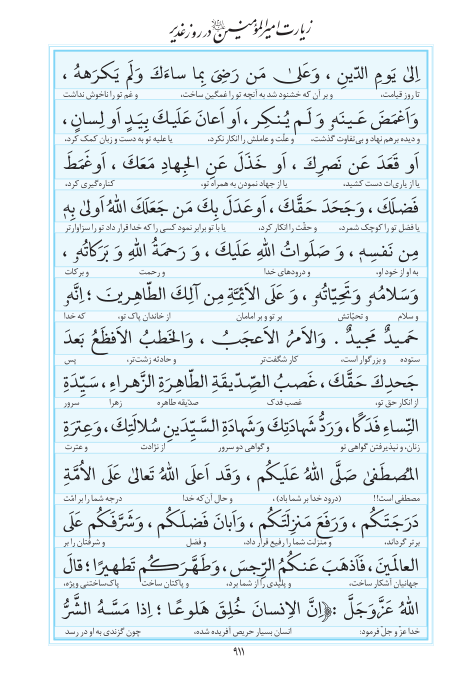 زیارت امیرالمؤمنین در روز غدیر
اِلىٰ يَومِ الدّينِ ، وَعَلىٰ مَن رَضِىَ بِما ساءَكَ وَلَم يَكرَههُ ،
تا روز قیامت، و بر آن که خشنود شد به آنچه تو را غمگین ساخت، و غم تو را ناخوش نداشت
وَاَغمَضَ عَينَهُ وَلَم يُنكِر ، اَو اَعانَ عَلَيكَ بِيَدٍ اَو لِسانٍ ،
و دیده برهم نهاد و بی‌تفاوت گذشت، و علّت و عاملش را انکار نکرد، یا علیه تو به دست و زبان کمک کرد،
اَو قَعَدَ عَن نَصرِكَ ، اَو خَذَلَ عَنِ الجِهادِ مَعَكَ ، اَوغَمَطَ
یا از یاری‌ات دست کشید، یا از جهاد نمودن به همراه تو، کناره‌گیری کرد،
فَضلَكَ ، وَجَحَدَ حَقَّكَ ، اَوعَدَلَ بِكَ مَن جَعَلَكَ اللهُ اَولىٰ بِهِ
یا فضل تو را کوچک شمرد، و حقّت را انکار کرد، یا با تو برابر نمود کسی را که خدا قرار داد تو را سزاوارتر
مِن نَفسِهِ ، وَ صَلَواتُ اللهِ عَلَيكَ ، وَ رَحمَةُ اللهِ وَ بَرَكاتُهُ ،
به او از خود او، و درودهای خدا و رحمت و برکات
وَسَلامُهُ وَتَحِيّاتُهُ ، وَ عَلَى الاَئِمَّةِ مِن آلِكَ الطّاهِرينَ ؛ اِنَّهُ
و سلام و تحیّاتش بر تو و بر امامان از خاندان پاک تو، که خدا
حَميدٌ مَجيدٌ . وَالاَمرُ الاَعجَبُ ، وَالخَطبُ الاَفظَعُ بَعدَ
ستوده و بزرگوار است، کار شگفت‌تر و حادثه زشت‌تر، پس
جَحدِكَ حَقَّكَ ، غَصبُ الصِّدّيقَةِ الطّاهِرَةِ الزَّهراءِ ، سَيِّدَةِ
از انکار حق تو، غصب فدک صدّیقه طاهره زهرا سرور
النِّساءِ فَدَكًا ، وَرَدُّ شَهادَتِكَ وَشَهادَةِ السَّيِّدَينِ سُلالَتِكَ ، وَعِترَةِ
زنان، و نپذیرفتن گواهی تو و گواهی دو سرور از نژادت و عترت
المُصطَفىٰ صَلَّى اللهُ عَلَيكُم ، وَقَد اَعلَى اللهُ تَعالىٰ عَلَى الاُمَّةِ
مصطفی است!! (درود خدا بر شما باد) ، و حال آن که خدا درجه شما را بر امّت
دَرَجَتَكُم ، وَرَفَعَ مَنزِلَتَكُم ، وَاَبانَ فَضلَكُم ، وَشَرَّفَكُم عَلَى
برتر گرداند، و منزلت شما را رفیع قرار داد، و فضل و شرفتان را بر
العالَمينَ ، فَاَذهَبَ عَنكُمُ الرِّجسَ ، وَطَهَّرَكُم تَطهيرًا ؛ قالَ
جهانیان آشکار ساخت، و پلیدی را از شما برد، و پاکتان ساخت پاک‌ساختنی ویژه،
اللهُ عَزَّوَجَلَّ : ﴿اِنَّ الاِنسانَ خُلِقَ هَلوعًا ؛ اِذا مَسَّهُ الشَّرُّ
خدا عزّ و جلّ فرمود: انسان بسیار حریص آفریده شده، چون گزندی به او در رسد
۹۱۱